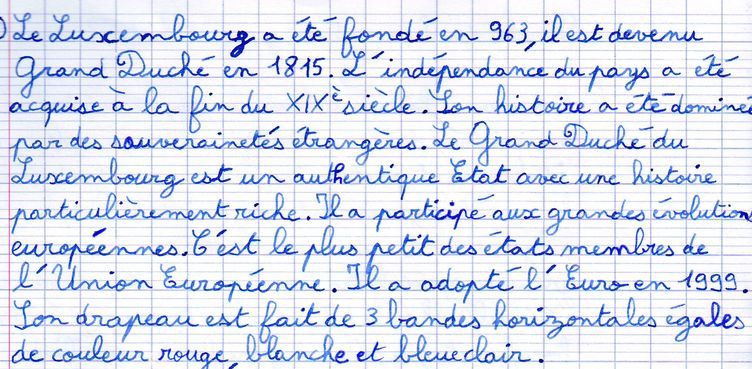 Le Luxembourg a été fondé en 963, il est devenu
Grand Duché en 1815. L'indépendance du pays a été
acquise à la fin du XIXè siècle. Son histoire a été dominée
par des souverainetés étrangères. Le Grand Duché du
Luxembourg est un authentique Etat avec une histoire
particulièrement riche. Il a participé aux grandes évolutions
européennes. C'est le plus petit des états membres de
l'Union Européenne. Il a adopté l'Euro en 1999.
Son drapeau est fait de 3 bandes horizontales égales
de couleur rouge, blanche et bleue clair.